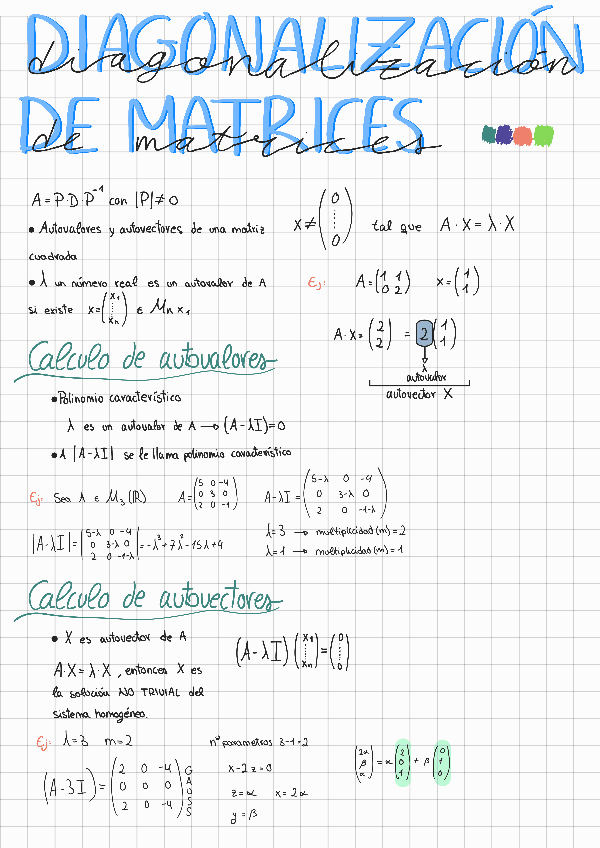 DIAGONALIZACIÓN
diagonalización
DE MATRICES
de matrices
A = P·D·P⁻¹ con |P| ≠ 0
• Autovalores y autovectores de una matriz
cuadrada
• λ un número real es un autovalor de A
si existe x = (x₁ ⋮ xₙ) ∈ Mn x 1
X ≠ (0 ⋮ 0) tal que A·X = λ·X
Ej: A = (1 1 / 0 2) x = (1 / 1)
A·X = (2 / 2) = 2 (1 / 1)
λ
autovalor
autovector X
Calculo de autovalores
• Polinomio característico
λ es un autovalor de A → (A-λI)=0
• A |A-λI| se le llama polinomio característico
Ej: Sea A ∈ M₃(R) A = (5 0 -4 / 0 3 0 / 2 0 -1) A-λI = (5-λ 0 -4 / 0 3-λ 0 / 2 0 -1-λ)
|A-λI| = |5-λ 0 -4 / 0 3-λ 0 / 2 0 -1-λ| = -λ³+7λ²-15λ+9
λ=3 → multiplicidad (m) = 2
λ=1 → multiplicidad (m) = 1
Calculo de autovectores
• X es autovector de A
A·X = λ·X, entonces X es
la solución NO TRIVIAL del
sistema homogéneo.
(A-λI) (x₁ ⋮ xₙ) = (0 ⋮ 0)
Ej: λ=3 m=2
(A-3I) = (2 0 -4 / 0 0 0 / 2 0 -4) GAUSS
nº parametros 3-1=2
x-2z=0
z=α x=2α
y=β
(2α / β / α) = α (2 / 0 / 1) + β (0 / 1 / 0)